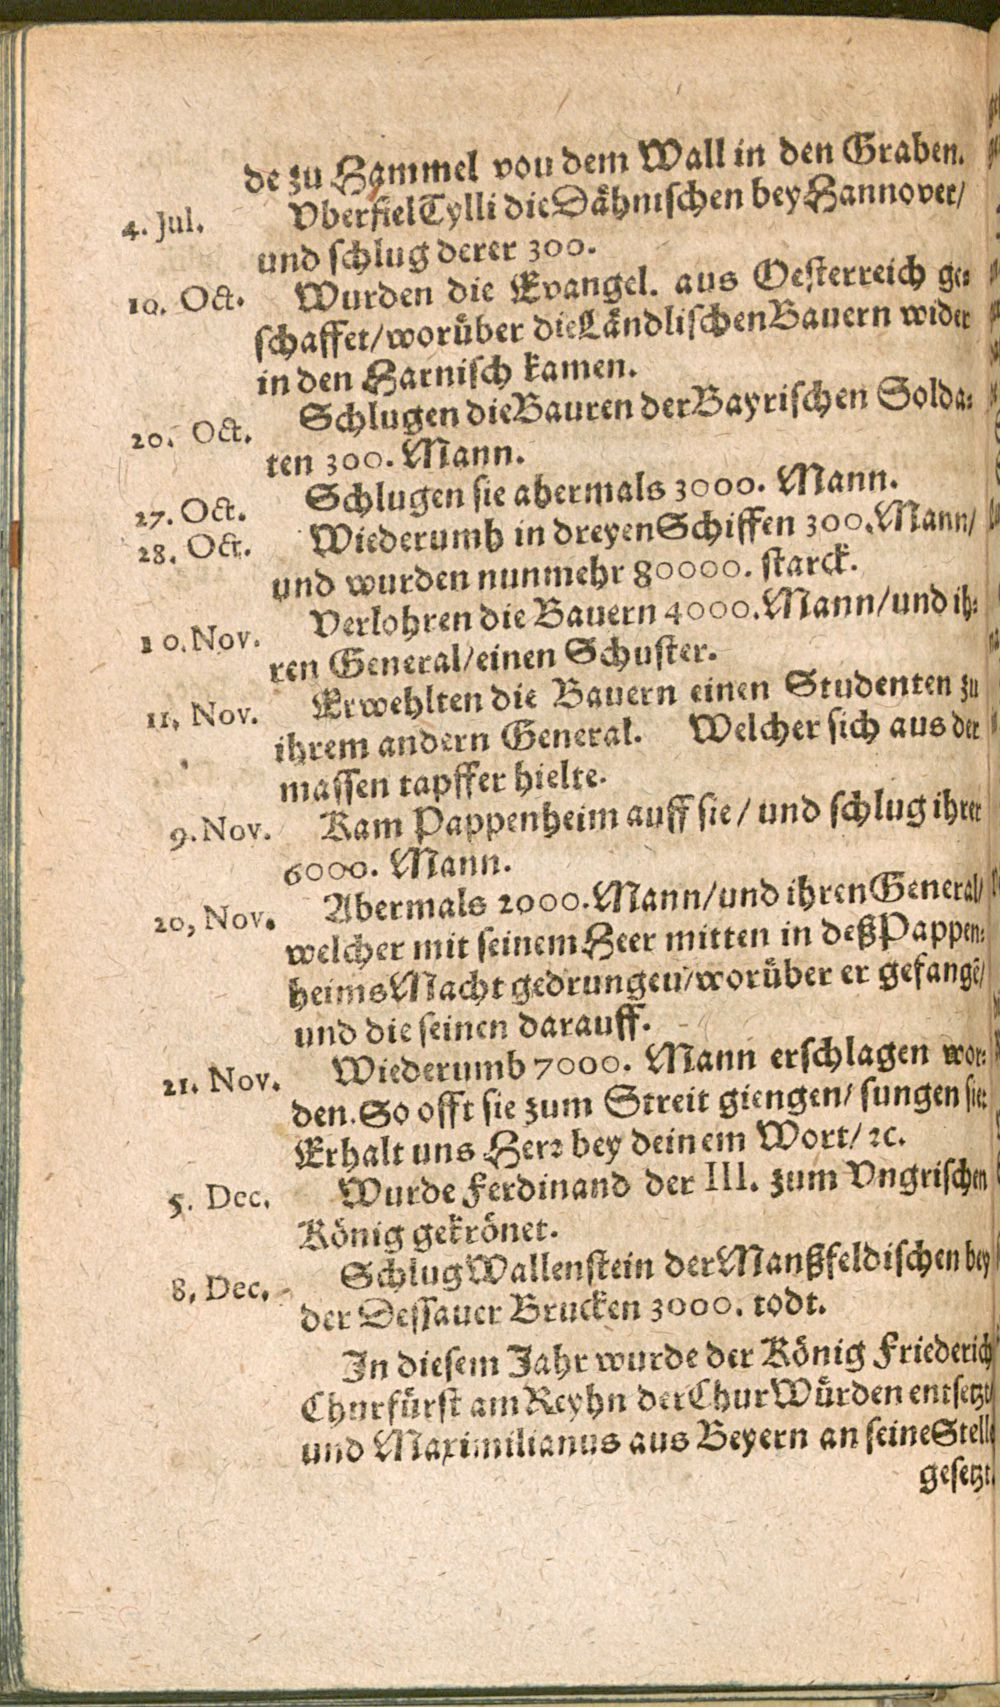 de zu Hammel vou dem Wall in den Graben.
4. Jul. Vberfiel Tylli die Dähnischen bey Hannover/
und schlug derer 300.
10. Oct. Wurden die Evangel. aus Oesterreich ge⸗
schaffet/worüber die Ländlischen Bauern wider
in den Harnisch kamen.
20. Oct. Schlugen die Bauren der Bayrischen Solda⸗
ten 300. Mann.
27. Oct. Schlugen sie abermals 3000. Mann.
28. Oct. Wiederumb in dreyen Schiffen 300. Mann/
und wurden nunmehr 80000. starck.
10. Nov. Verlohren die Bauern 4000. Mann/und ih⸗
ren General/einen Schuster.
11, Nov. Erwehlten die Bauern einen Studenten zu
ihrem andern General. Welcher sich aus der
massen tapffer hielte.
9. Nov. Kam Pappenheim auff sie/ und schlug ihrer
6000. Mann.
20, Nov. Abermals 2000. Mann/und ihren General/
welcher mit seinem Heer mitten in deß Pappen⸗
heims Macht gedrungeu/worüber er gefangē/
und die seinen darauff.
21. Nov. Wiederumb 7000. Mann erschlagen wor⸗
den. So offt sie zum Streit giengen/ sungen sie:
Erhalt uns Herꝛ bey deinem Wort/ ꝛc.
5. Dec. Wurde Ferdinand der III. zum Vngrischen
König gekrönet.
8, Dec. Schlug Wallenstein der Manßfeldischen bey
der Dessauer Brucken 3000. todt.
In diesem Jahr wurde der König Friederich
Churfürst am Reyhn der Chur Würden entsetzt/
und Maximilianus aus Beyern an seine Stelle
gesetzt.